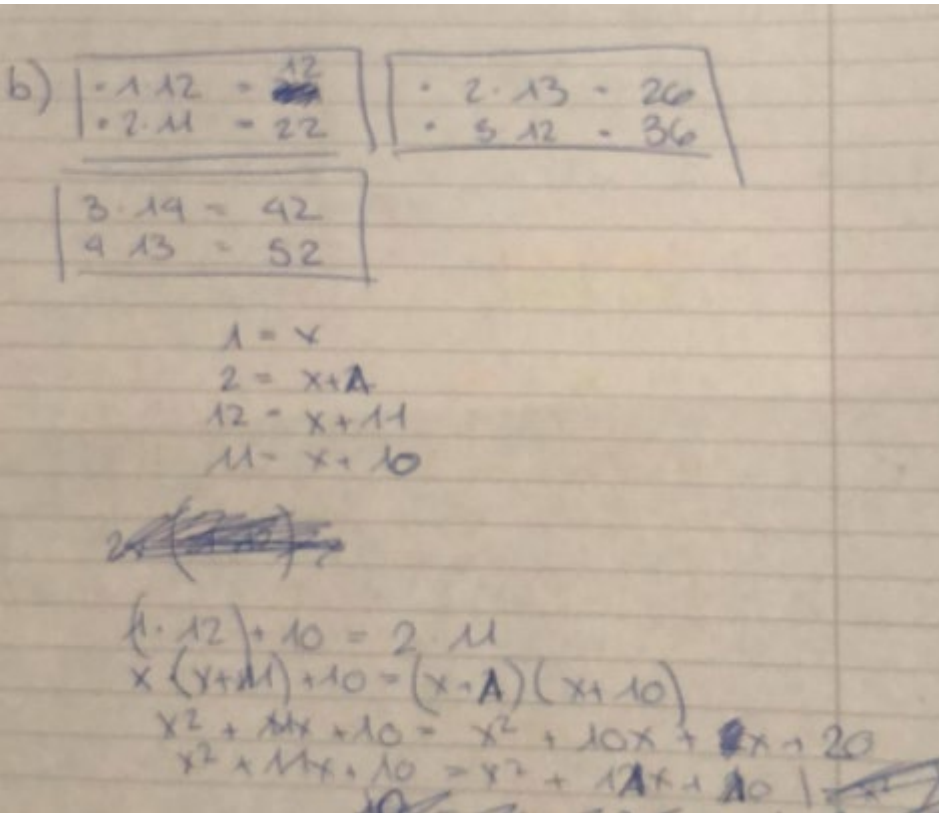 b) · 1·12 = 12
· 2·11 = 22
· 2·13 = 26
· 3 12 = 36
3·14 = 42
4 13 = 52
1 = x
2 = x+1
12 = x+11
11 = x+10
(1·12)+10 = 2·11
x·(x+11)+10=(x+1)(x+10)
x² + 11x +10 = x² + 10x + x + 20
x² + 11x + 10 = x² + 11x + 10 |